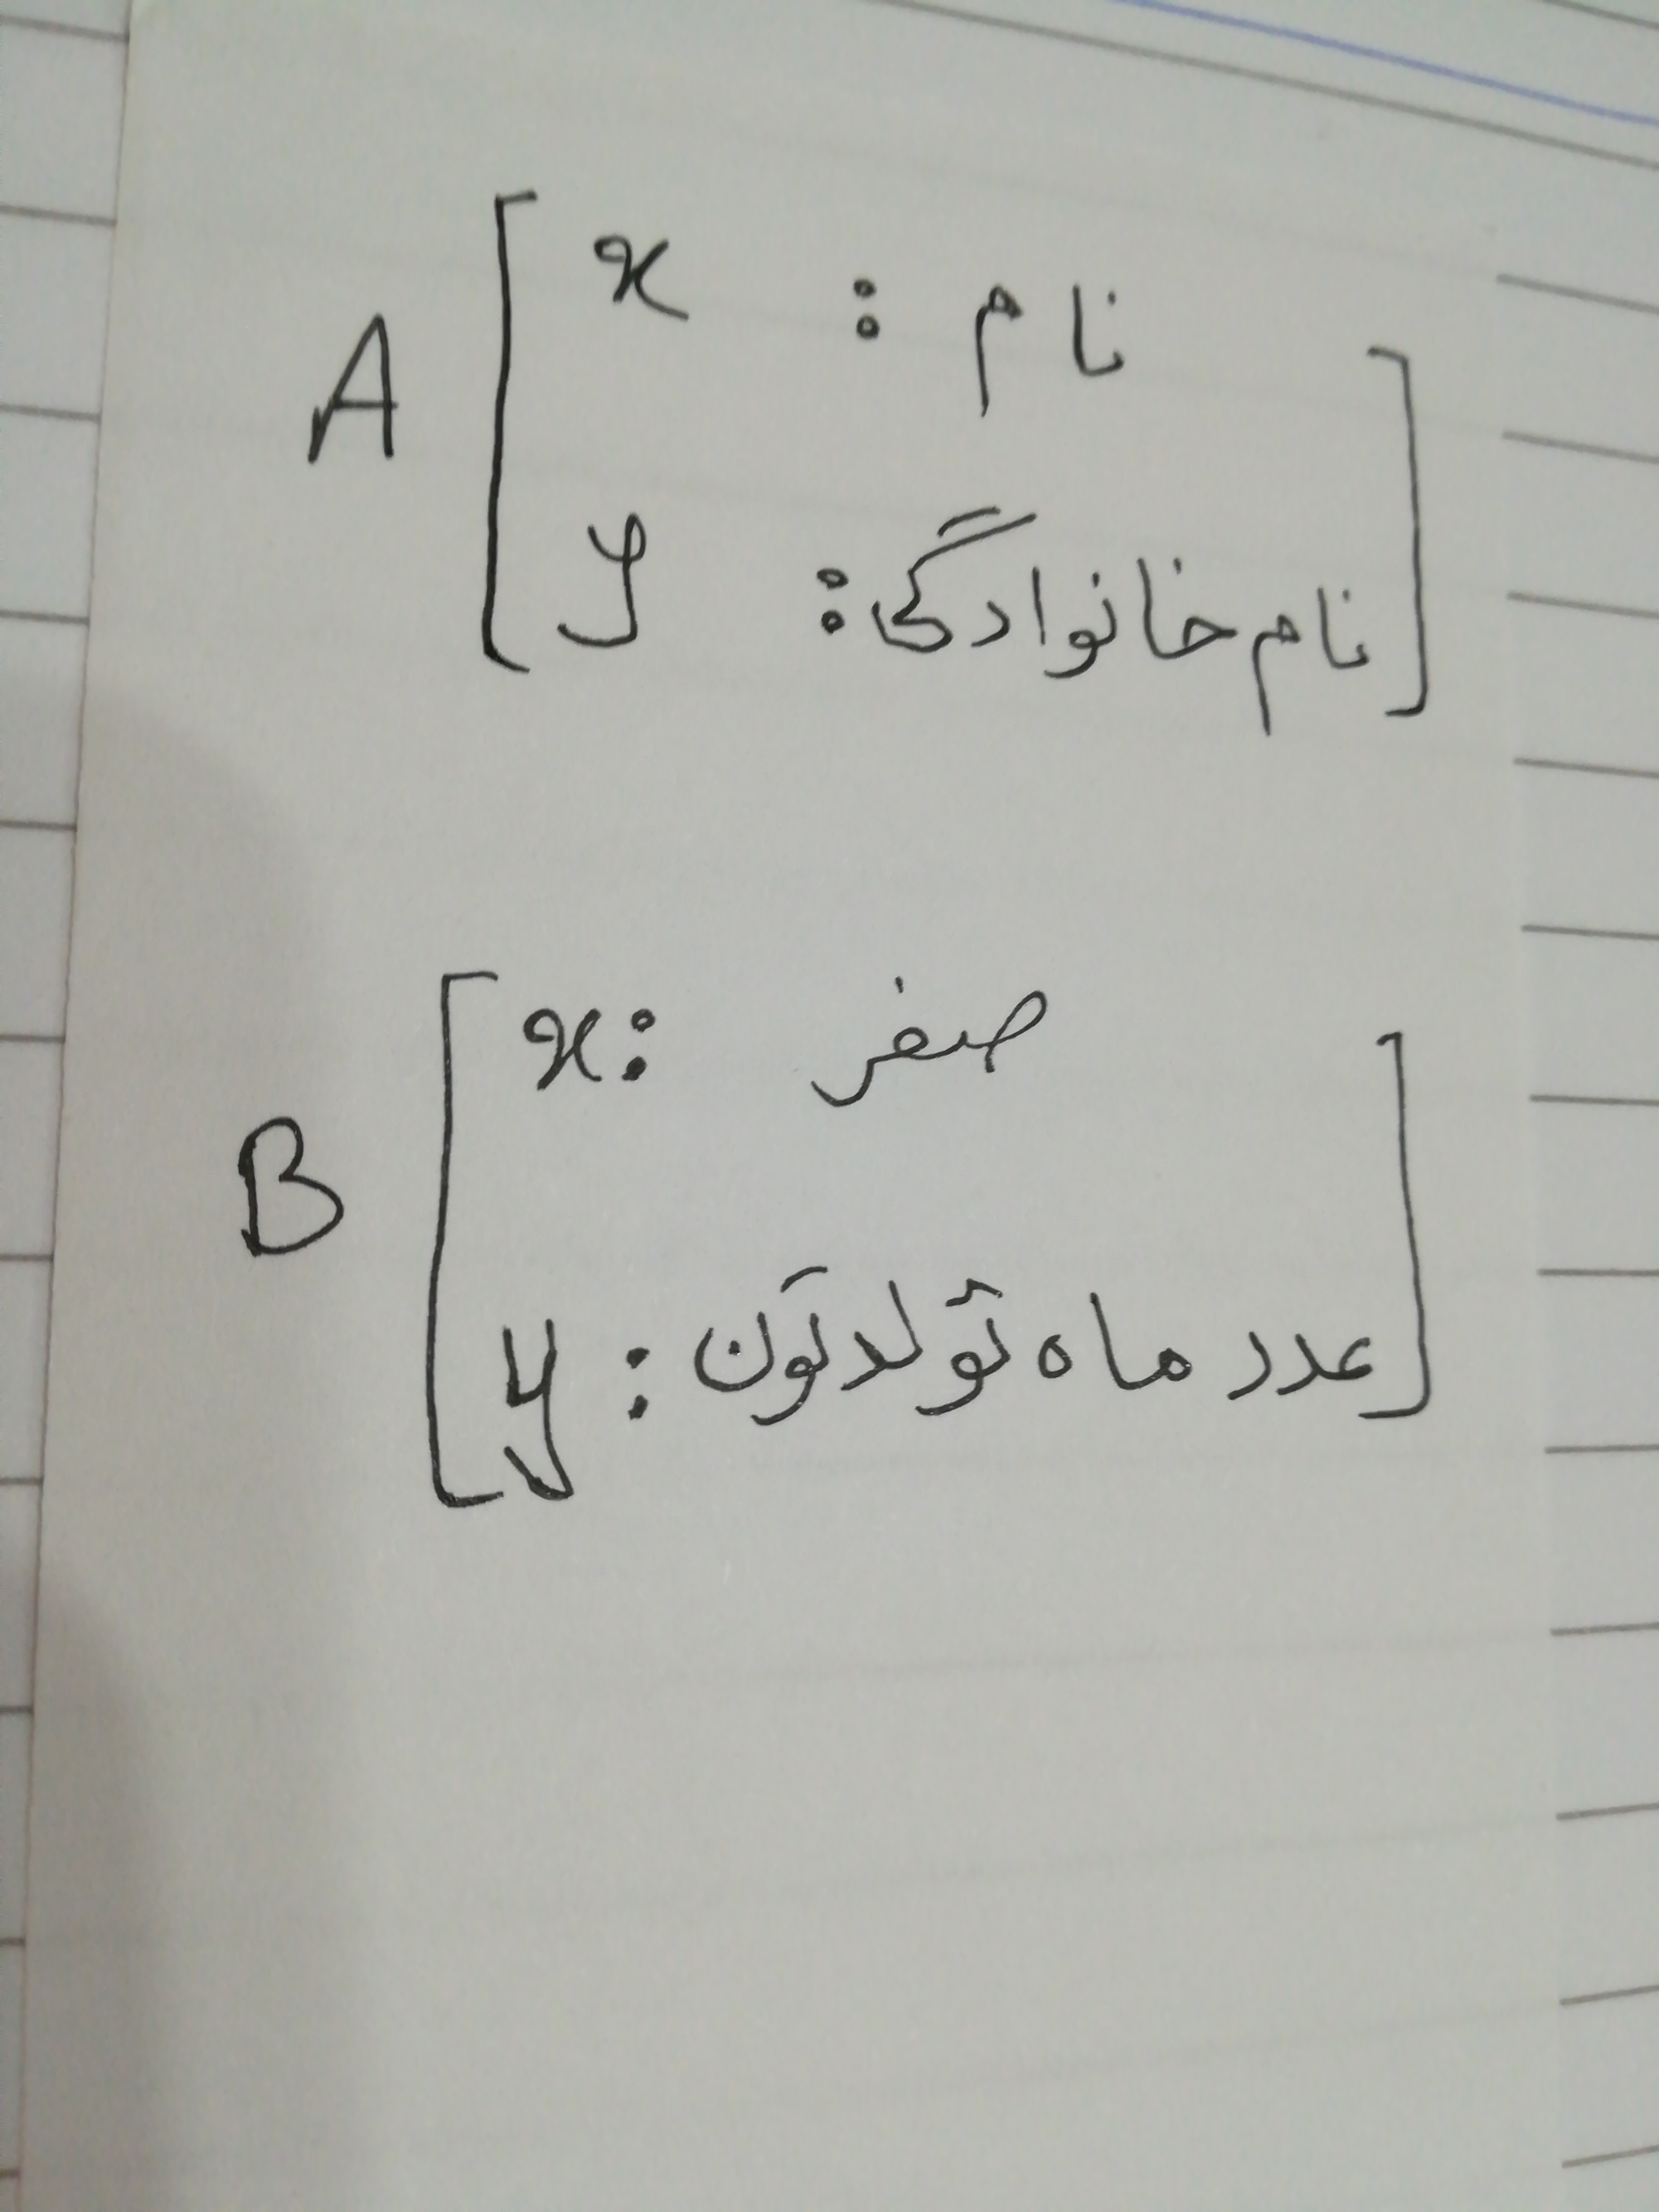 A [ x : نام
y : نام خانوادگی ]
B [ x : صفر
y : عدد ماه تولدتون ]